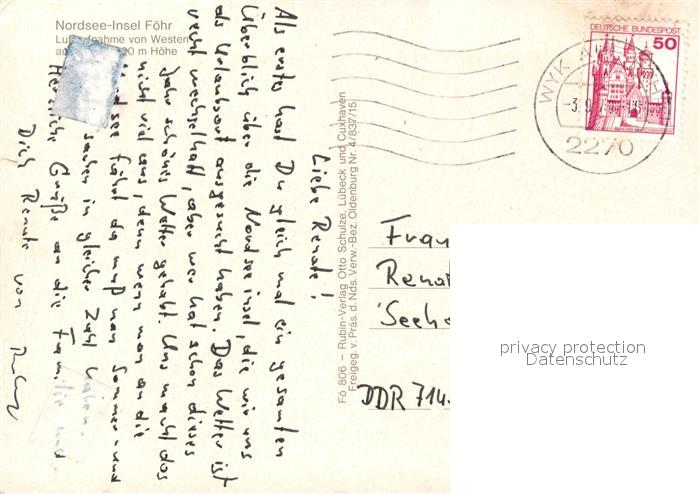 Nordsee-Insel Föhr
Luftaufnahme von Westen
aus 00 m Höhe
Liebe Renate!
Als erstes hast Du gleich mal ein gesamten
Überblick über die Nordseeinsel, die wir uns
als Urlaubsort ausgesucht haben. Das Wetter ist
recht wechselhaft, aber wer hat schon dieses
Jahr schönes Wetter gehabt. Uns macht das
nicht viel aus, denn wenn man an die
Nordsee fährt da muß man Sommer- und
sachen in gleicher Zahl haben.
Herzliche Grüße an die Familie und
Dich Renate von
Fö 806 – Rubin-Verlag Otto Schulze, Lübeck und Cuxhaven
Freigeg. v. Präs. d. Nds. Verw.-Bez. Oldenburg Nr. 4/837/15
DEUTSCHE BUNDESPOST
50
WYK A
-3.9.
2270
Frau
Renat
Seehe
DDR 714
privacy protection
Datenschutz